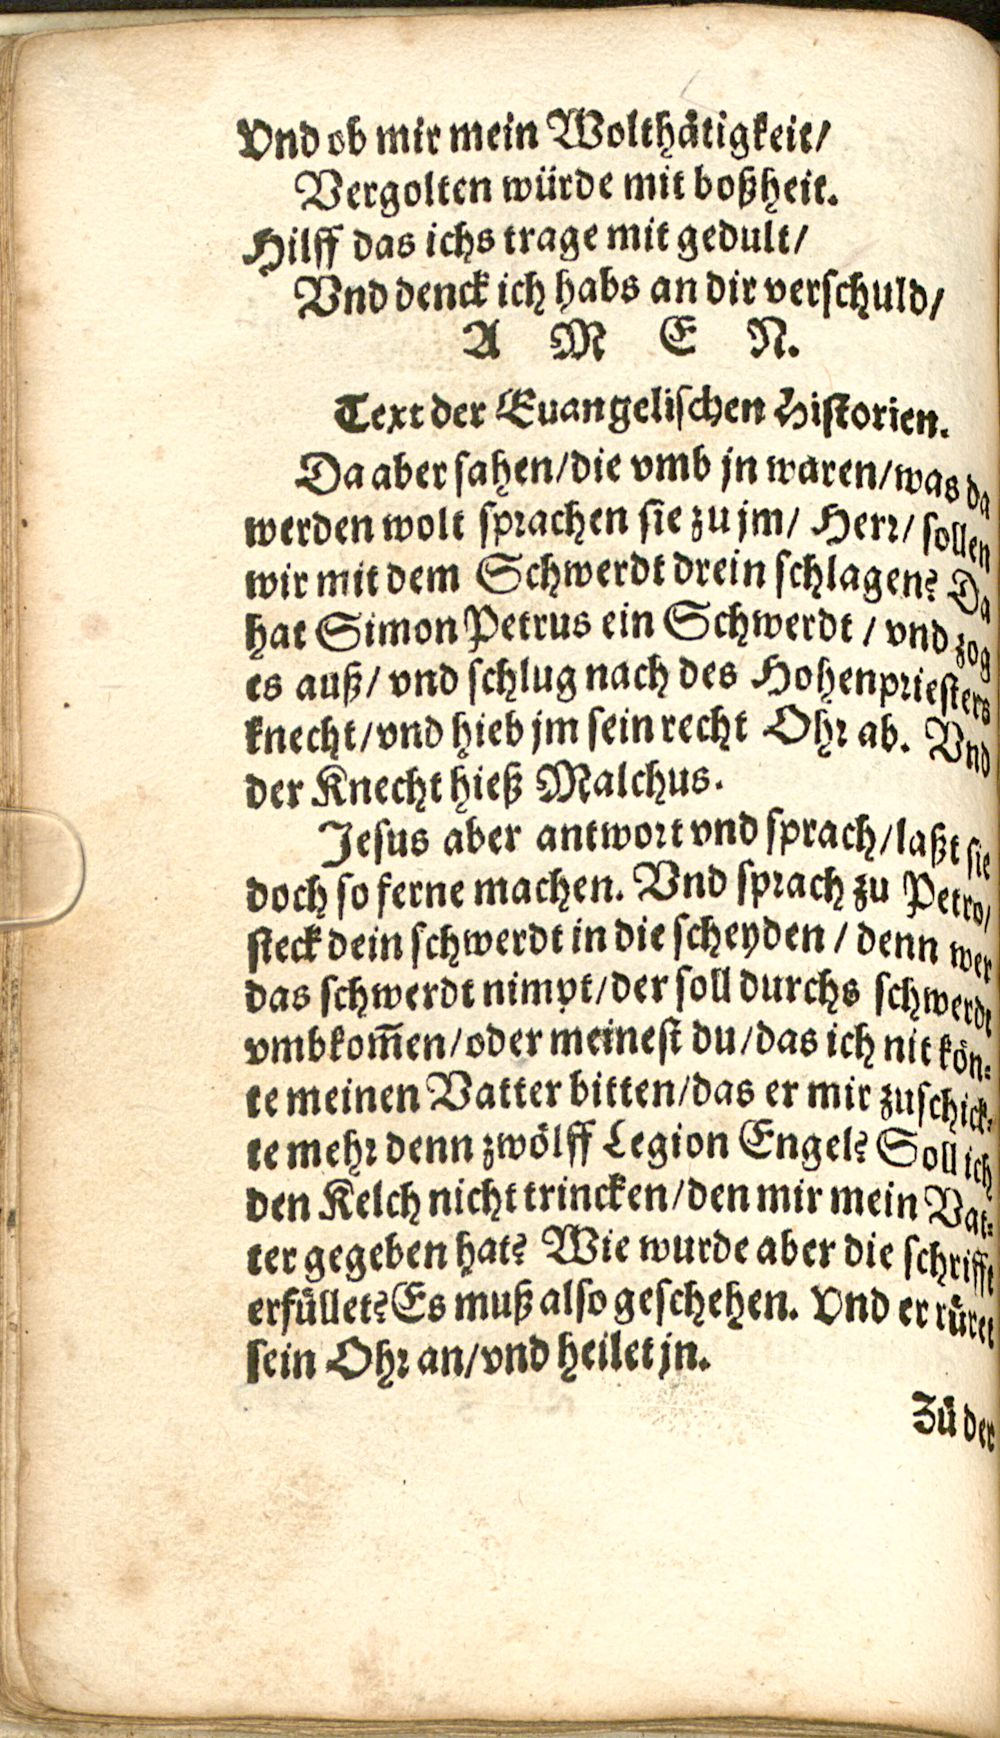 Vnd ob mir mein Wolthätigkeit/
Vergolten würde mit boßheit.
Hilff das ichs trage mit gedult/
Vnd denck ich habs an dir verschuld/
A M E N.
Text der Euangelischen Historien.
Da aber sahen/die vmb jn waren/was da
werden wolt sprachen sie zu jm/ Herr/ sollen
wir mit dem Schwerdt drein schlagen? Da
hat Simon Petrus ein Schwerdt / vnd zog
es auß/ vnd schlug nach des Hohenpriesters
knecht/vnd hieb jm sein recht Ohr ab. Vnd
der Knecht hieß Malchus.
Jesus aber antwort vnd sprach/laßt sie
doch so ferne machen. Vnd sprach zu Petro/
steck dein schwerdt in die scheyden / denn wer
das schwerdt nimpt/der soll durchs schwerdt
vmbkom̃en/oder meinest du/das ich nit kön-
te meinen Vatter bitten/das er mir zuschick-
te mehr denn zwölff Legion Engel? Soll ich
den Kelch nicht trincken/den mir mein Vat-
ter gegeben hat? Wie wurde aber die schrifft
erfüllet? Es muß also geschehen. Vnd er rüret
sein Ohr an/vnd heilet jn.
Zů der